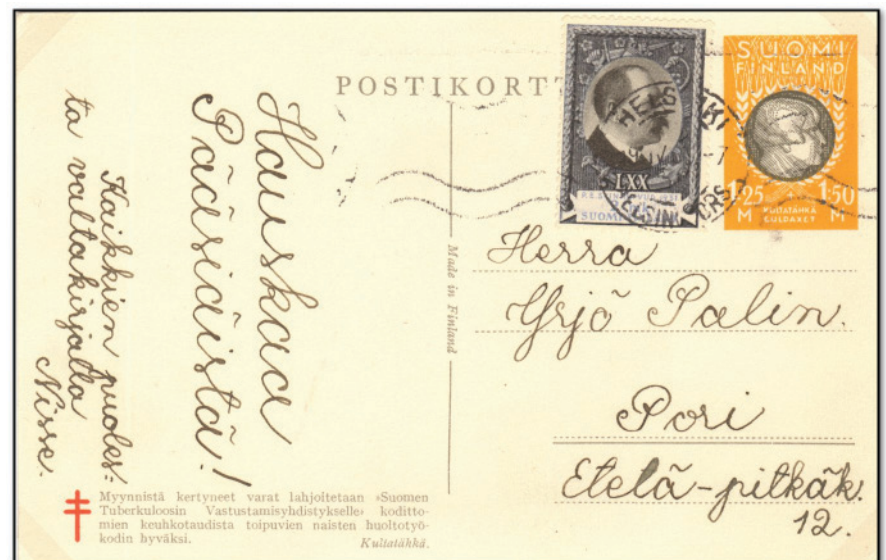 POSTIKORTT
SUOMI
FINLAND
1·25 1·50
M M
KULTATÄHKÄ
GULDAXET
LXX
P.E. SVINHUFVUD 1931
SUOMI
HELSINKI
HELSINGFORS
Hauskaa
Pääsiäistä!
Kaikkien puoles-
ta valtakirjalla
Nisse.
Made in Finland
Herra
Yrjö Palin.
Pori
Etelä-pitkäk.
12.
Myynnistä kertyneet varat lahjoitetaan »Suomen
Tuberkuloosin Vastustamisyhdistykselle» koditto-
mien keuhkotaudista toipuvien naisten huoltotyö-
kodin hyväksi.
Kultatähkä.